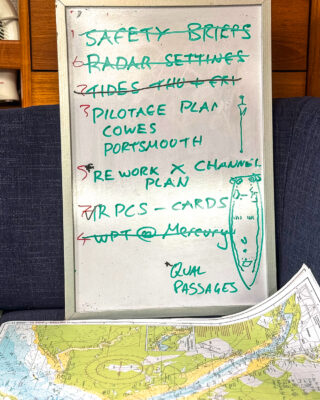 1 SAFETY BRIEFS
6 RADAR SETTINGS
2 TIDES THU & FRI
3 PILOTAGE PLAN
COWES
PORTSMOUTH
5 REWORK X CHANNEL
PLAN
7 IRPCS - CARDS
4 WPT @ Mercury
*QUAL
PASSAGES